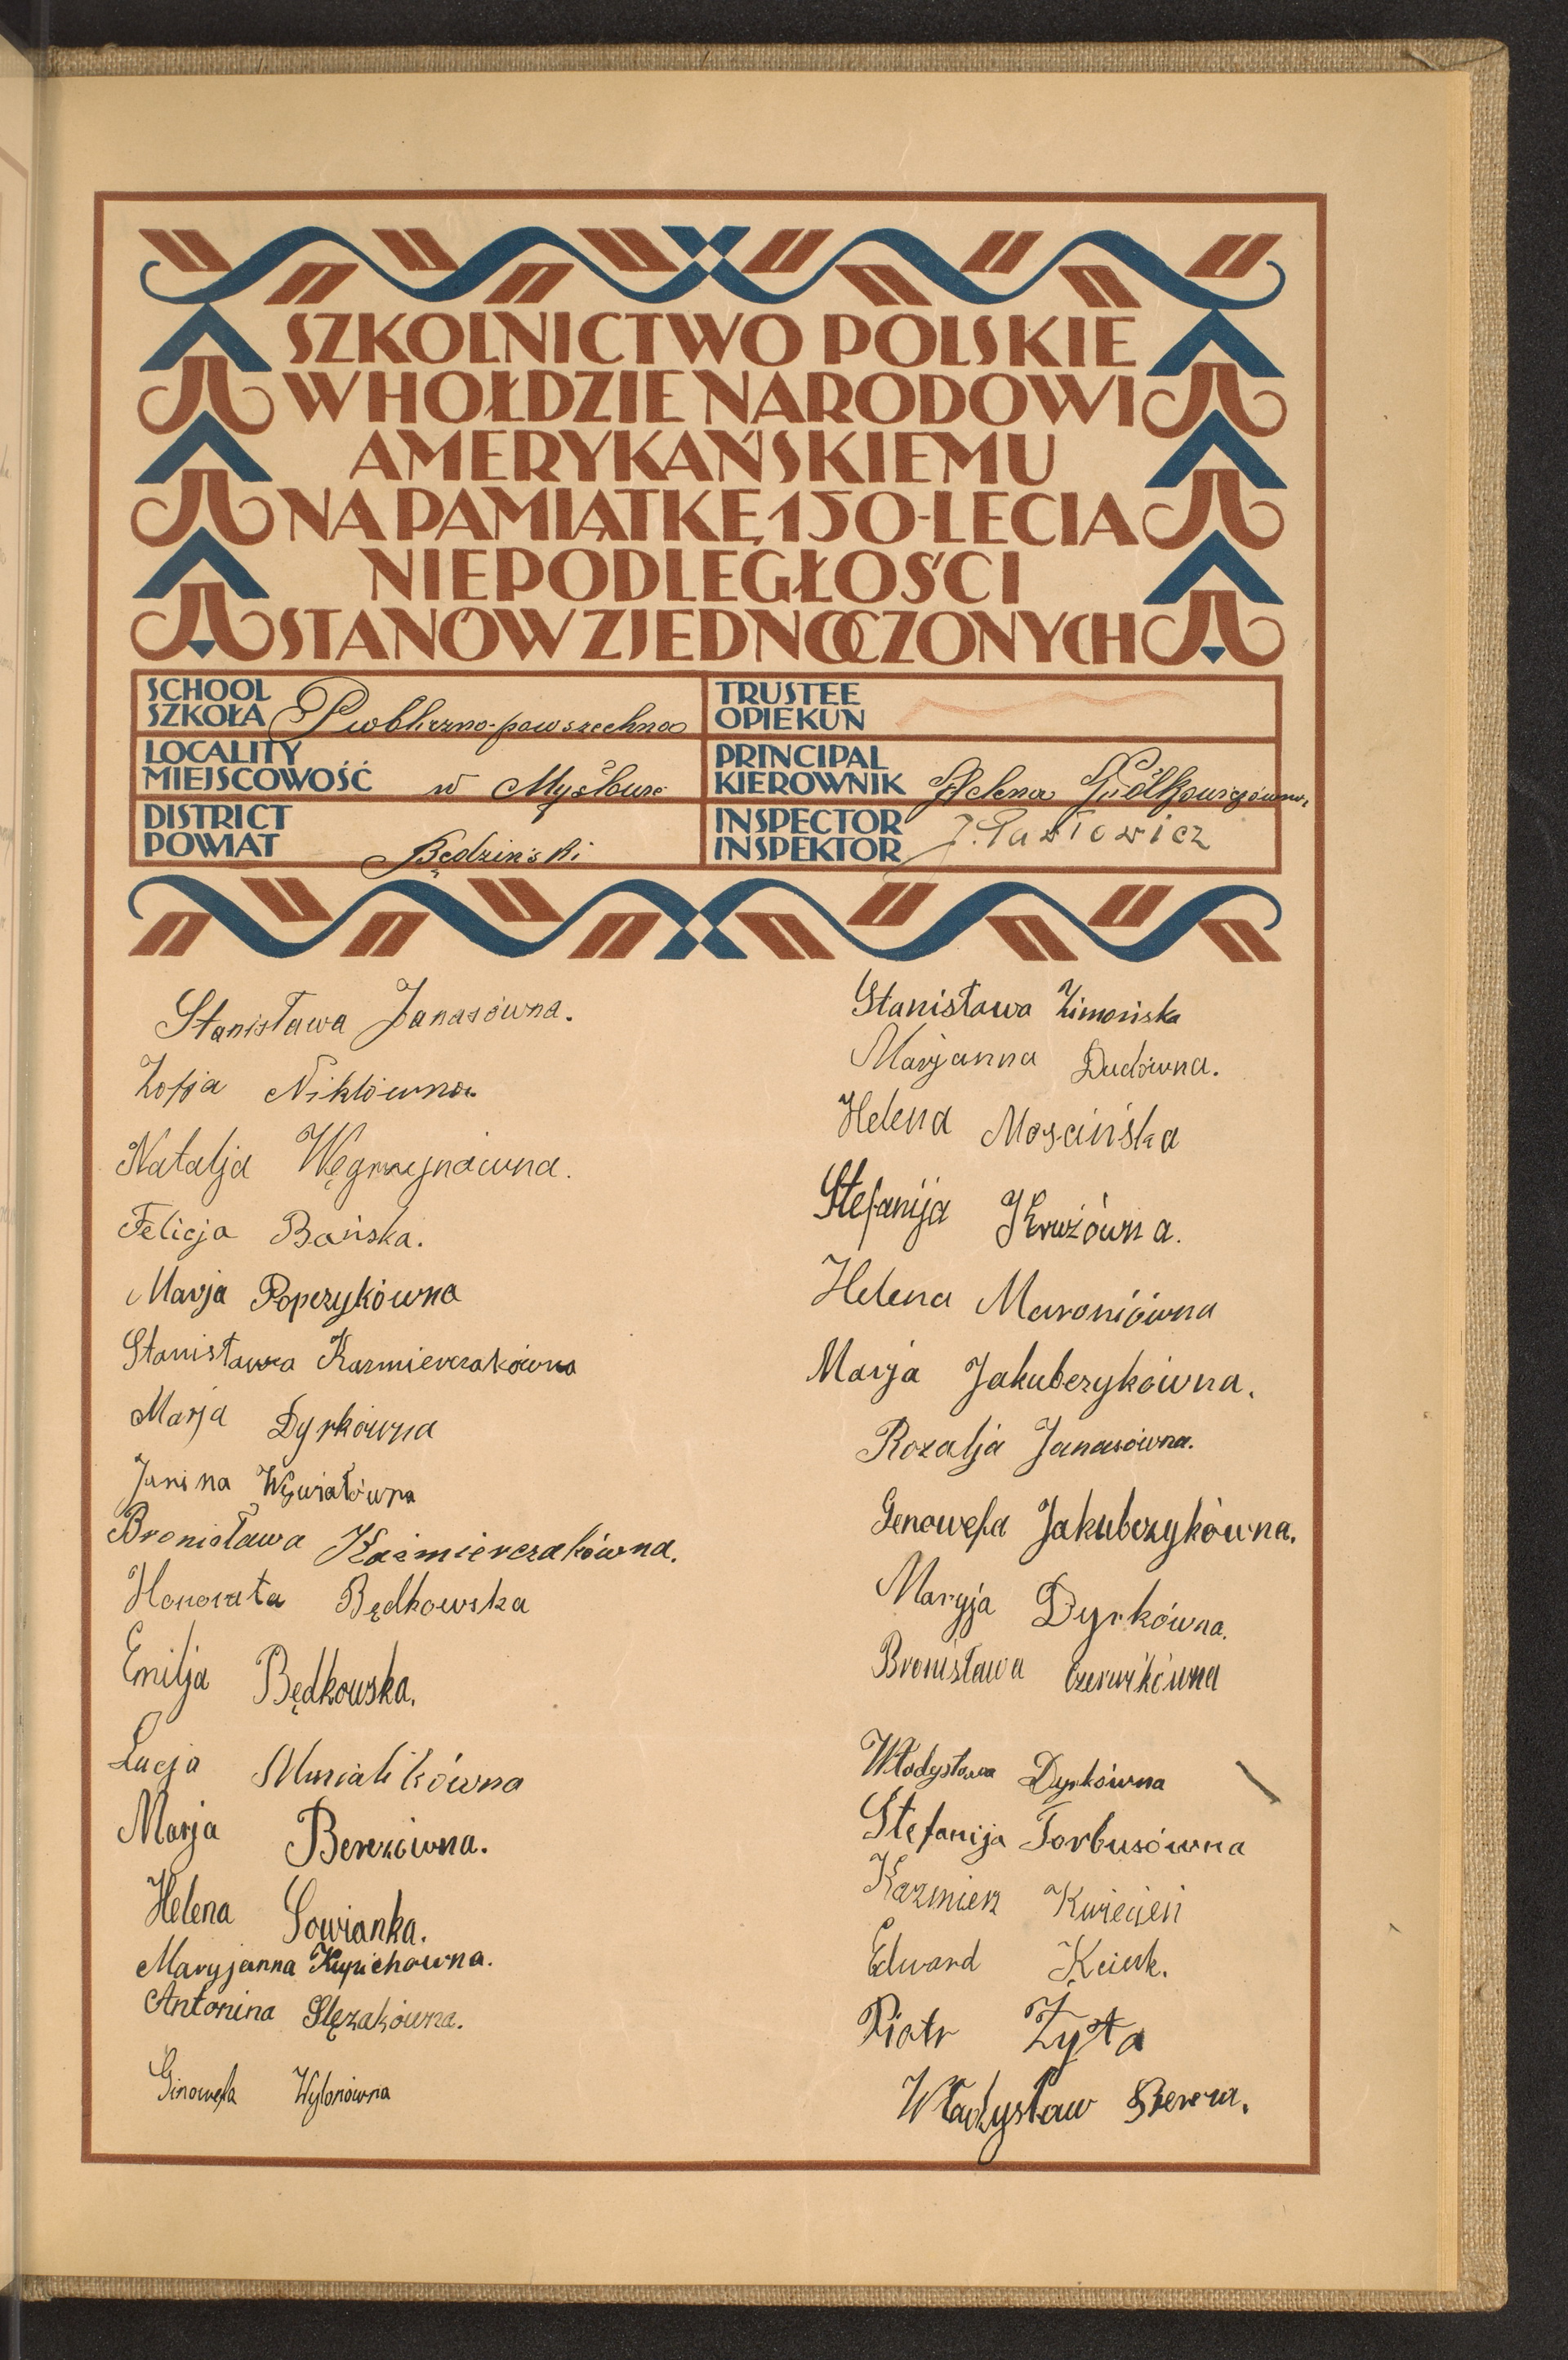 SZKOLNICTWO POLSKIE
W HOŁDZIE NARODOWI
AMERYKAŃSKIEMU
NA PAMIĄTKĘ 150-LECIA
NIEPODLEGŁOŚCI
STANÓW ZJEDNOCZONYCH
SCHOOL
SZKOŁA Publiczno-powszechna
LOCALITY
MIEJSCOWOŚĆ w Mysłowie
DISTRICT
POWIAT Będziński
TRUSTEE
OPIEKUN
PRINCIPAL
KIEROWNIK Helena
INSPECTOR
INSPEKTOR J. Pawłowicz
Stanisława Janasówna.
Zofja Niklówna.
Natalja Węgrzynówna.
Felicja Bańska.
Marja Popczykówna
Stanisława Kazmierczakówna
Marja Dyrkówna
Janina
Bronisława Kaźmierczakówna.
Honorata Będkowska
Emilja Będkowska.
Lucja Musialikówna
Marja Berezówna.
Helena Sowianka.
Maryjanna Kupichówna.
Antonina Slęzakówna.
Ginowefa Wylonówna
Stanisława Zimońska
Marjanna Dudówna.
Helena Moscińska
Stefanija Kruźówna.
Helena Maroniówna
Marja Jakubczykówna.
Rozalja Janasówna.
Genowefa Jakubczykówna.
Maryja Dyrkówna.
Bronisława Czerwikówna
Władysława Dyrkówna
Stefanija Torbusówna
Kazmierz Kwiecień
Edward
Piotr Żyła
Władysław Berera.